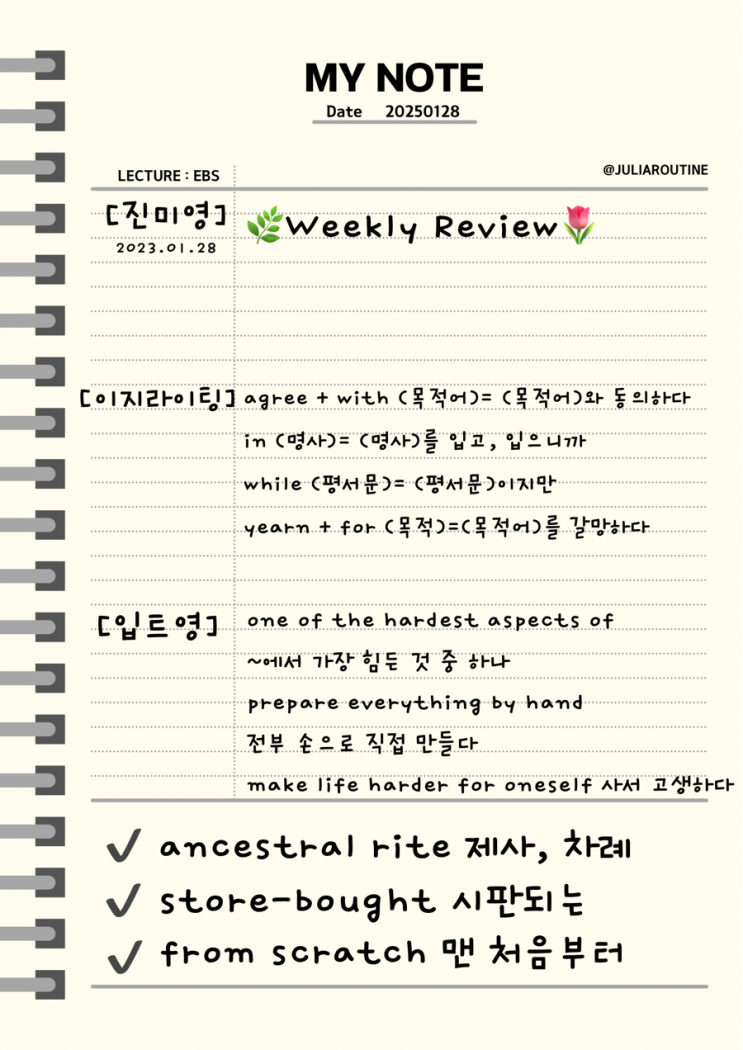 MY NOTE
Date 20250128
LECTURE : EBS
@JULIAROUTINE
[진미영]
2023.01.28
Weekly Review
[이지라이팅] agree + with (목적어)= (목적어)와 동의하다
in (명사)= (명사)를 입고, 입으니까
while (평서문)= (평서문)이지만
yearn + for (목적)=(목적어)를 갈망하다
[입트영] one of the hardest aspects of
~에서 가장 힘든 것 중 하나
prepare everything by hand
전부 손으로 직접 만들다
make life harder for oneself 사서 고생하다
ancestral rite 제사, 차례
store-bought 시판되는
from scratch 맨 처음부터